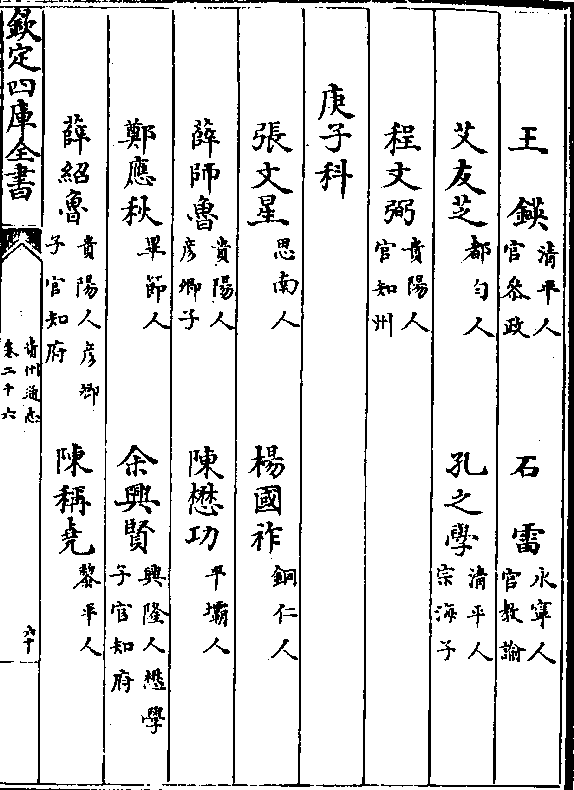 王鍈 清平人官叅政 石雷 永寧人官教諭
艾友芝 都勻人 孔之學 清平人宗海子
程文弼 貴陽人官知州
庚子科
張文星 思南人 楊國祚 銅仁人
薛師魯 貴陽人彦卿子 陳懋功 平壩人
鄭應秋 畢節人 余興賢 興隆人懋學子官知府
薛紹魯 貴陽人彦卿子官知府 陳稱堯 黎平人
欽定四庫全書 貴州通志卷二十六 六十